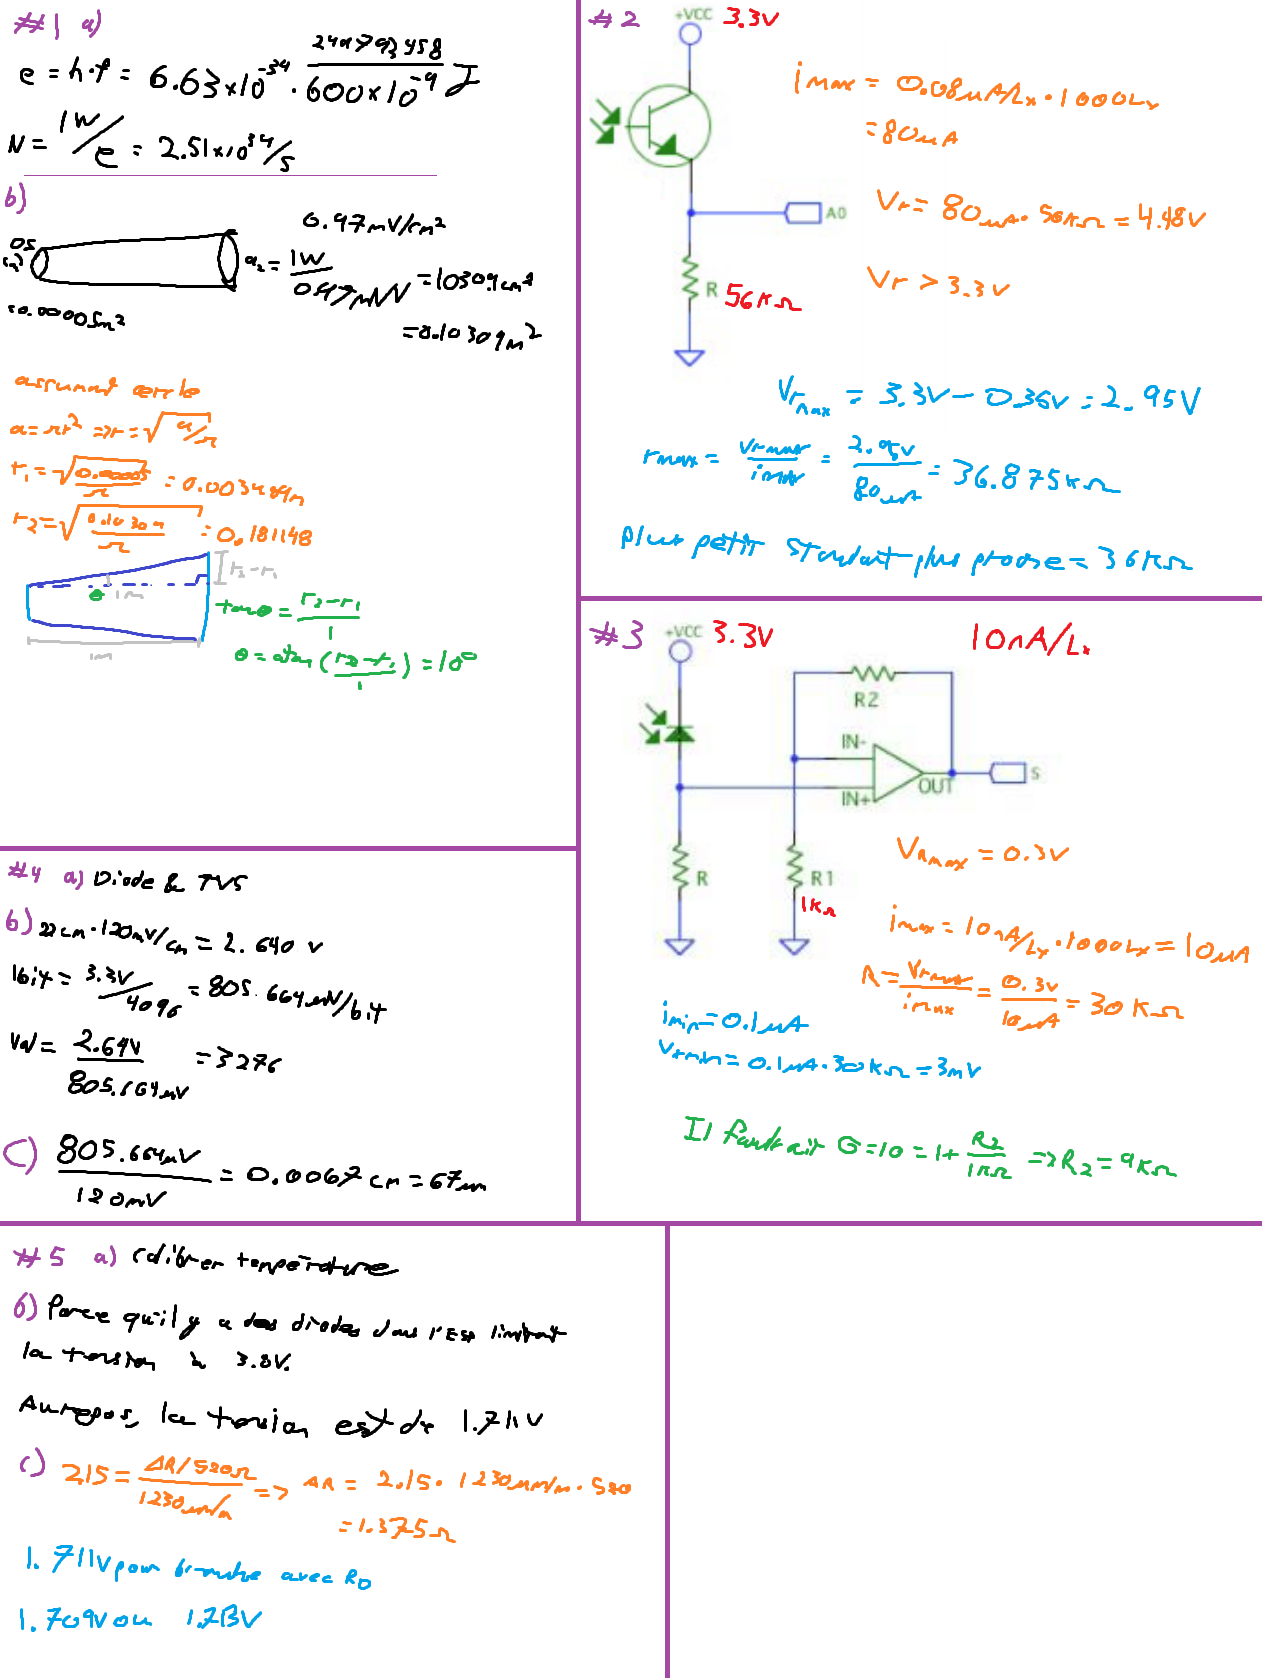 #1 a)
e = h·f = 6.63×10^-34 · 299792458 / 600×10^-9 J
N = 1W/e = 2.51×10^34/s
b)
0.97mV/cm²
a₂ = 1W / 0.97mW = 10309cm²
= 0.10309m²
= 0.00005m²
assumant cercle
a = πr² => r = √a/π
r₁ = √0.00005/π = 0.003989m
r₂ = √0.10309/π = 0.181148
r₂-r₁
θ 1m
1m
tanθ = r₂-r₁ / 1
θ = atan(r₂-r₁ / 1) = 10°
#2
+VCC 3.3V
A0
R 56kΩ
imax = 0.08µA/Lx · 1000Lx
= 80µA
Vr = 80µA · 56kΩ = 4.48V
Vr > 3.3V
Vrmax = 3.3V - 0.35V = 2.95V
rmax = Vrmax / imax = 2.95V / 80µA = 36.875kΩ
plus petit standard plus proche = 36kΩ
#3
+VCC 3.3V
10nA/Lx
R2
IN-
IN+
OUT
S
R
R1
1kΩ
VRmax = 0.3V
imax = 10nA/Lx · 1000Lx = 10µA
R = Vrmax / imax = 0.3V / 10µA = 30kΩ
imin = 0.1µA
Vrmin = 0.1µA · 30kΩ = 3mV
Il faudrait G = 10 = 1 + R2 / 1kΩ => R2 = 9kΩ
#4 a) Diode & TVS
b) 22cm · 120mV/cm = 2.640 V
1bit = 3.3V/4096 = 805.664µV/bit
Val = 2.64V / 805.664µV = 3276
C) 805.664µV / 120mV = 0.0067cm = 67µm
#5 a) Calibrer température
b) Parce qu'il y a des diodes dans l'ESP limitant
la tension à 3.8V.
Au repos, la tension est de 1.711V
c) 2.15 = ΔR/520Ω / 1230µm/m => ΔR = 2.15 · 1230µm/m · 520
= 1.375Ω
1.711V pour branche avec RD
1.709V ou 1.713V